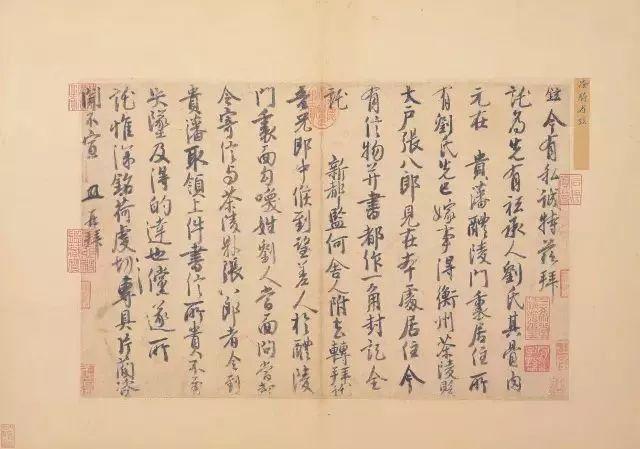 鉉今有私誠特兹拜
託為先有祗承人劉氏其骨肉
元在 貴藩醴陵門裏居住所
有劉氏先已嫁事得衡州茶陵縣
大户張八郎見在本處居住今
有信物并書都作一角封記全
託 新都監何舍人附去轉拜託
吾兄郎中候到望差人於醴陵
門裏面勾喚姓劉人當面問當却
令寄信與茶陵縣張八郎者令到
貴藩取領上件書信所貴不至
失墜及得的達也儻遂所
託惟深銘荷虔切專具片簡諮
聞不宣 鉉再拜